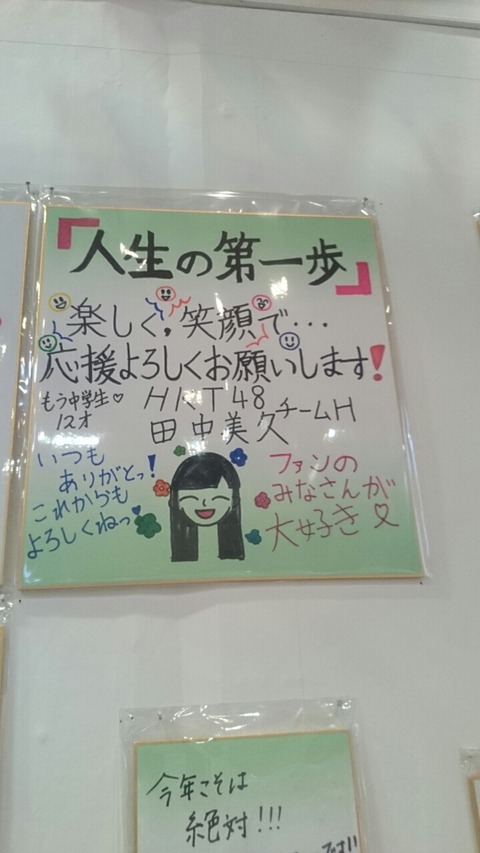 「人生の第一歩」
楽しく,笑顔で…
応援よろしくお願いします!
もう中学生♡
12才
HKT48
田中美久チームH
いつも
ありがとっ!
これからも
よろしくねっ
ファンの
みなさんが
大好き♡
今年こそは
絶対!!!